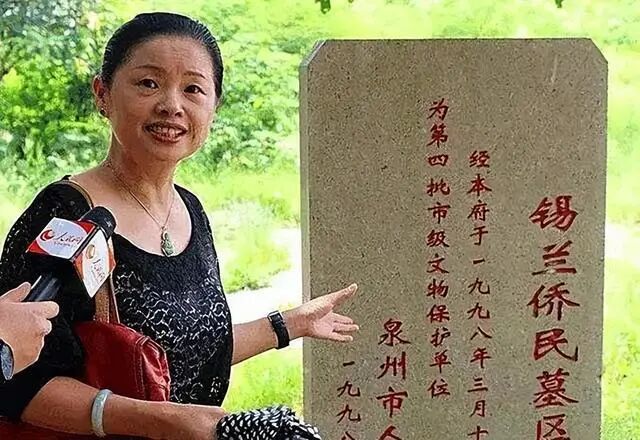 锡兰侨民墓区
经本府于一九九八年三月十
为第四批市级文物保护单位
泉州市人
一九九八
人民网